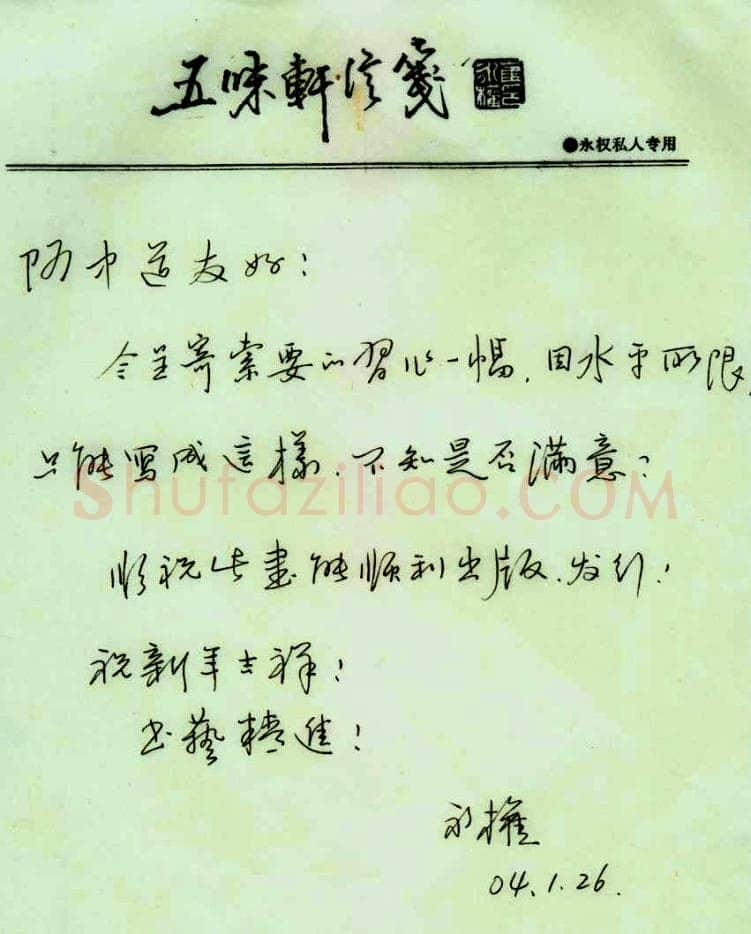 五味軒信箋
●永权私人专用
阿中道友好：
今呈寄索要的習作一幅，因水平所限，
只能寫成這樣，不知是否滿意？
shufaziliao.COM
順祝此書能順利出版、发行！
祝新年吉祥！
书藝精進！
永權
04.1.26.